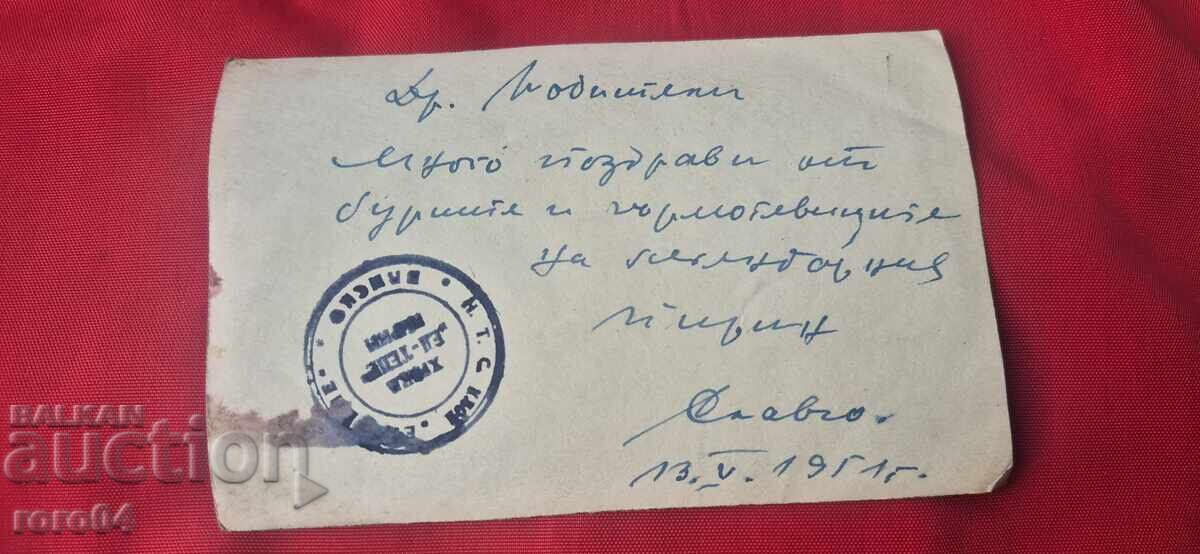 Др. Любители
Много поздрави от
бурите и гърмотевиците
на легендарния
Пирин
Славчо.
13.V.1951г.
Н. Т. С. КЛОН „ЕЛ-ТЕПЕ“ • БАНСКО •
ХИЖА
„ЕЛ-ТЕПЕ“
ПИРИН
BALKAN
auction
roro64